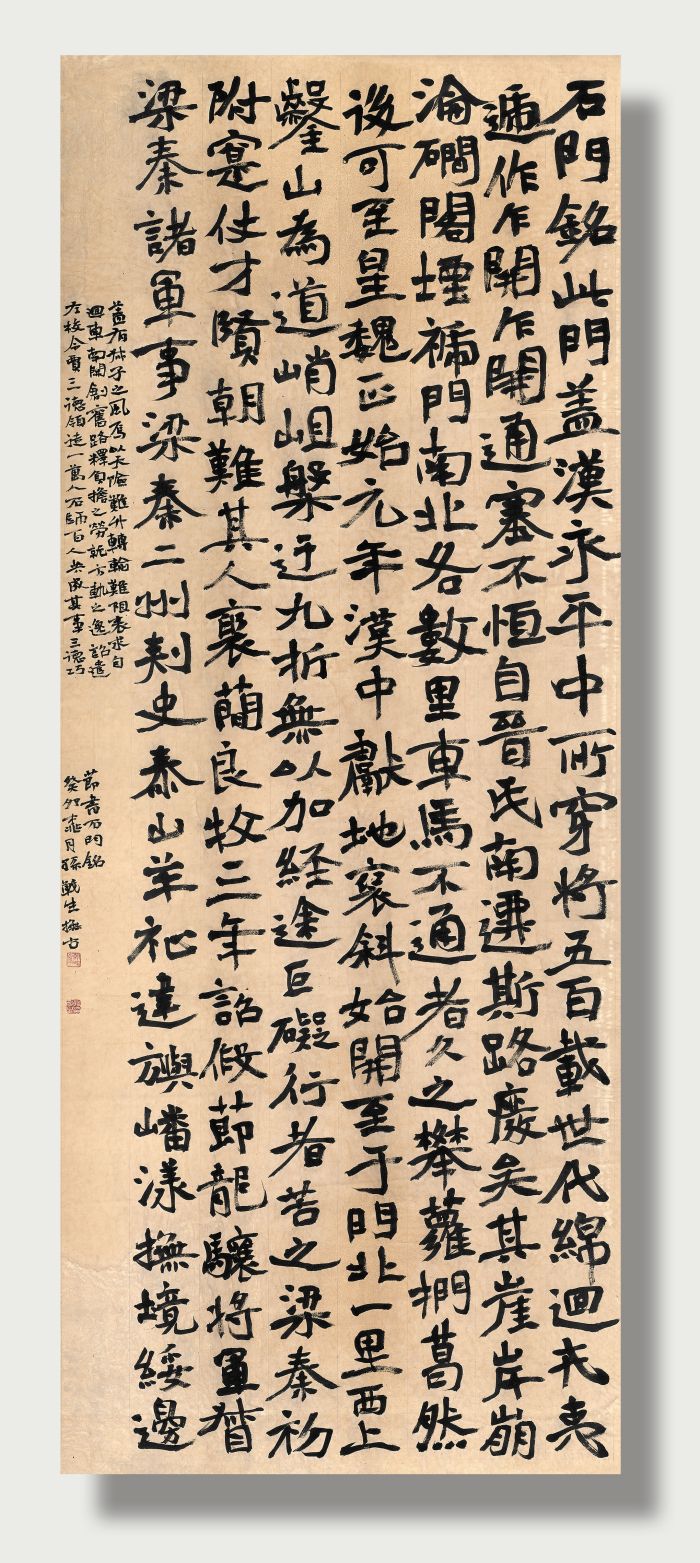 石門銘此門盖漢永平中所穿將五百載世代綿迴戎夷
遞作乍開乍閉通塞不恒自晉氏南遷斯路廢矣其崖岸崩
淪磵閣堙褫門南北各數里車馬不通者久之攀蘿捫葛然
後可至皇魏正始元年漢中獻地褒斜始開至于門北一里西上
鑿山為道峭岨槃迂九折無以加経途巨礙行者苦之梁秦初
附寔仗才賢朝難其人褒蕳良牧三年詔假莭龍驤將軍督
梁秦諸軍事梁秦二州刾史泰山羊祉建旟嶓漾撫境綏邊
盖有叔子之風焉以天險難升轉輸難阻表求自
迴車南開創舊路釋負擔之勞就方軌之逸詔遣
左校令賈三德領徒一萬人石師百人共成其事三德巧
莭書石門銘
癸卯 月孫 生撫古